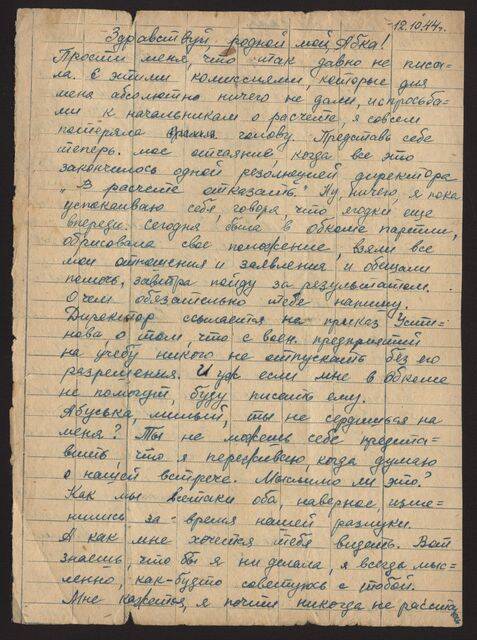 12.10.44г.
Здравствуй, родной мой, Абка!
Прости меня, что так давно не писа-
ла. С этими комиссиями, которые для
меня абсолютно ничего не дали, и просьба-
ми к начальникам о расчете, я совсем
потеряла голову. Представь себе
теперь мое отчаяние, когда все это
закончилось одной резолюцией директора
„В расчете отказать". Ну, ничего, я пока
успокаиваю себя, говоря, что ягодки еще
впереди. Сегодня была в обкоме партии,
обрисовала свое положение, взяли все
мои отношения и заявления и обещали
помочь, завтра пойду за результатом.
О чем обязательно тебе напишу.
Директор ссылается на приказ Усти-
нова, о том, что с воен. предприятий
на учебу никого не отпускать без его
разрешения. И уж если мне в Обкоме
не помогут, буду писать ему.
Абуська, милый, ты не сердишься на
меня? Ты не можешь себе предста-
вить, что я переживаю, когда думаю
о нашей встрече. Мыслимо ли это?
Как мы всетаки оба, наверное, изме-
нились за время нашей разлуки.
А как мне хочется тебя видеть. Вот
знаешь, что бы я ни делала, я всегда мыс-
ленно, как-будто советуюсь с тобой.
Мне кажется, я почти никогда не